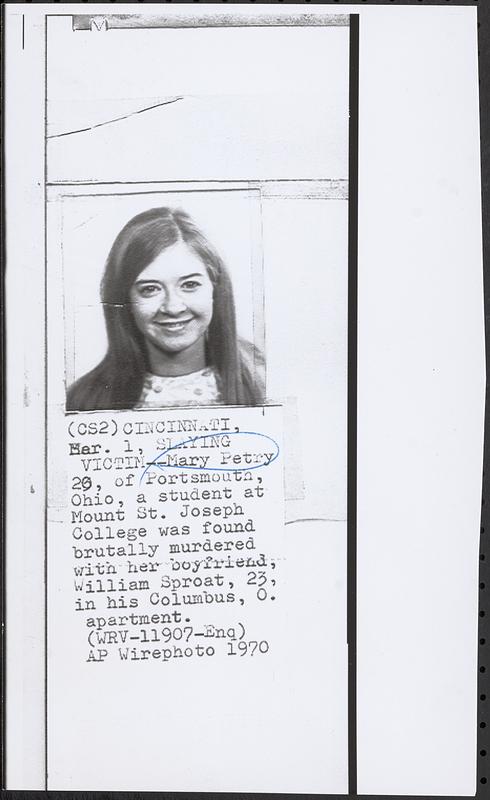 (CS2) CINCINNATI,
Mar. 1, SLAYING
VICTIM--Mary Petry
20, of Portsmouth,
Ohio, a student at
Mount St. Joseph
College was found
brutally murdered
with her boyfriend,
William Sproat, 23,
in his Columbus, O.
apartment.
(WRV-11907-Enq)
AP Wirephoto 1970